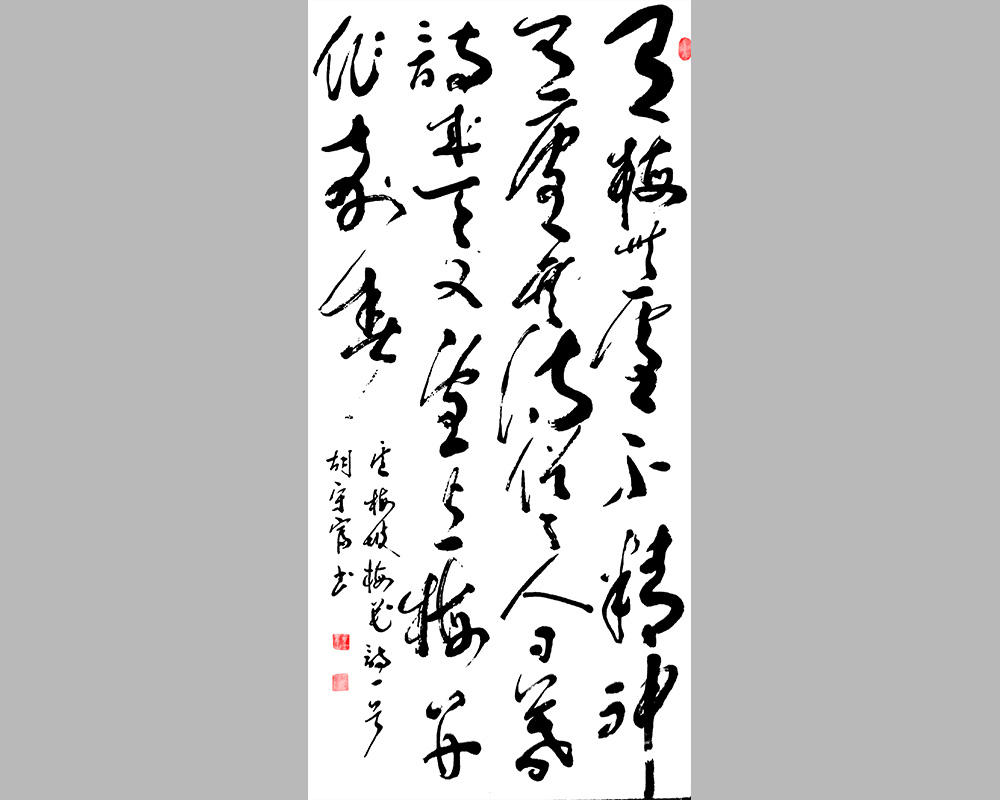 有梅無雪不精神
有雪無詩俗了人日暮
詩成天又雪与梅并
作十分春
盧梅坡梅花詩一首
胡书